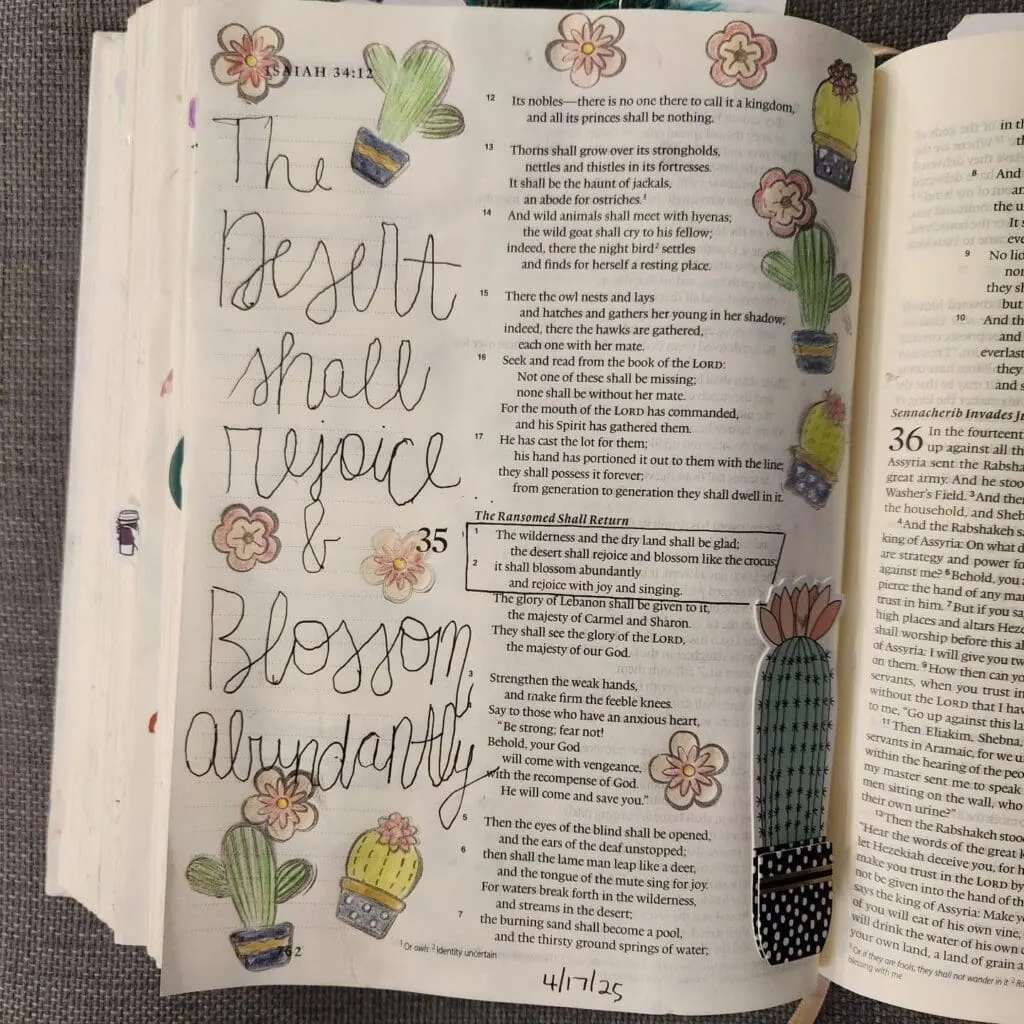 ISAIAH 34:12
The
Desert
shall
rejoice
&
Blossom
abundantly
12 Its nobles—there is no one there to call it a kingdom,
and all its princes shall be nothing.
13 Thorns shall grow over its strongholds,
nettles and thistles in its fortresses.
It shall be the haunt of jackals,
an abode for ostriches.1
14 And wild animals shall meet with hyenas;
the wild goat shall cry to his fellow;
indeed, there the night bird2 settles
and finds for herself a resting place.
15 There the owl nests and lays
and hatches and gathers her young in her shadow;
indeed, there the hawks are gathered,
each one with her mate.
16 Seek and read from the book of the LORD:
Not one of these shall be missing;
none shall be without her mate.
For the mouth of the LORD has commanded,
and his Spirit has gathered them.
17 He has cast the lot for them;
his hand has portioned it out to them with the line;
they shall possess it forever;
from generation to generation they shall dwell in it.
The Ransomed Shall Return
35
1 The wilderness and the dry land shall be glad;
the desert shall rejoice and blossom like the crocus;
2 it shall blossom abundantly
and rejoice with joy and singing.
The glory of Lebanon shall be given to it,
the majesty of Carmel and Sharon.
They shall see the glory of the LORD,
the majesty of our God.
3 Strengthen the weak hands,
and make firm the feeble knees.
4 Say to those who have an anxious heart,
"Be strong; fear not!
Behold, your God
will come with vengeance,
with the recompense of God.
He will come and save you."
5 Then the eyes of the blind shall be opened,
and the ears of the deaf unstopped;
6 then shall the lame man leap like a deer,
and the tongue of the mute sing for joy.
For waters break forth in the wilderness,
and streams in the desert;
7 the burning sand shall become a pool,
and the thirsty ground springs of water;
1 Or owls 2 Identity uncertain
762
4/17/25
in
8 And
the
It
9 No
they
but
10 And
and
they
and
Sennacherib Invades
36 In the fourteenth
up against all
Assyria sent the
great army. And he stood
Washer's Field. 3 And
the household, and
4 And the Rabshakeh
king of Assyria: On what
are strategy and power
against me? 6 Behold, you
pierce the hand of any
trust in him. 7 But if you
high places and altars
shall worship before this
of Assyria: I will give you
on them. 9 How then can
servants, when you trust in
without the LORD that I
to me, "Go up against this
11 Then Eliakim, Shebna,
servants in Aramaic, for we
within the hearing of the
my master sent me to speak
men sitting on the wall, who
their own urine?"
13 Then the Rabshakeh stood
"Hear the words of the great
let Hezekiah deceive you, for
make you trust in the LORD by
not be given into the hand of
says the king of Assyria: Make
of you will eat of his own vine,
will drink the water of his own
your own land, a land of grain
1 Or if they are fools, they shall not wander in it 2
blessing with me